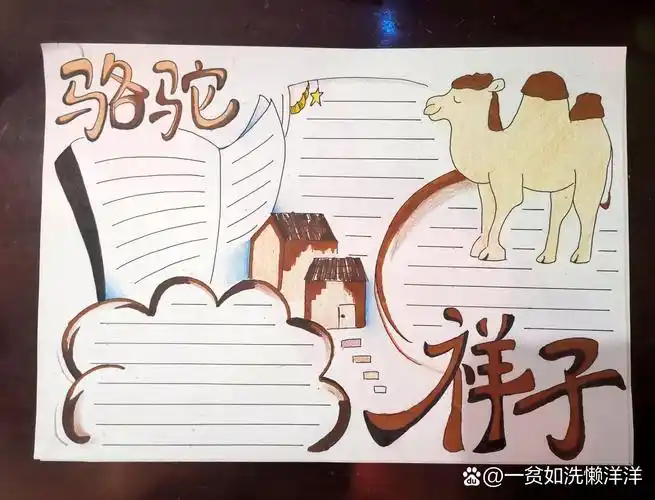 骆驼
祥子
du @一贫如洗懒洋洋